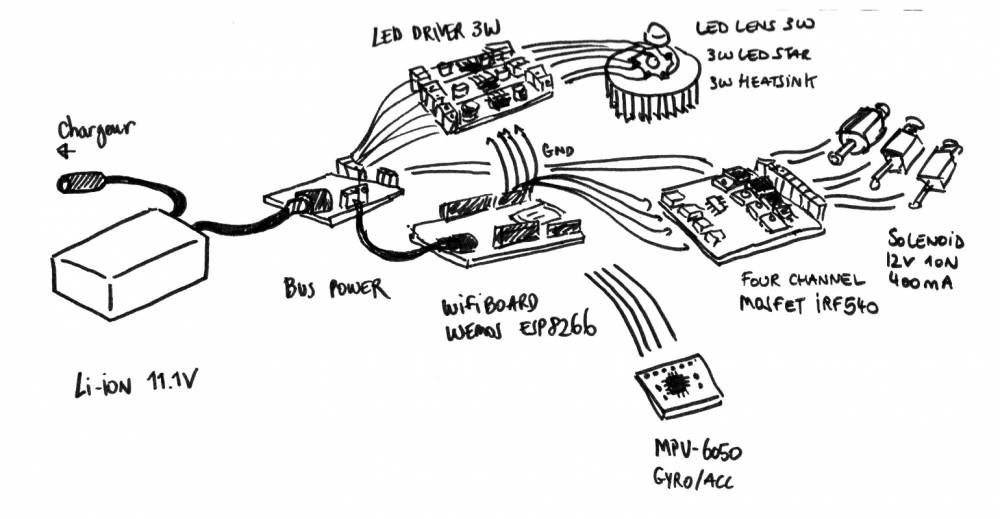 LED DRIVER 3W
LED LENS 3W
3W LED STAR
3W HEATSINK
Chargeur
GND
BUS POWER
WIFI BOARD
WEMOS ESP8266
SOLENOID
12V 10N
400mA
FOUR CHANNEL
MOSFET iRF540
Li-ion 11.1V
MPV-6050
GYRO/ACC